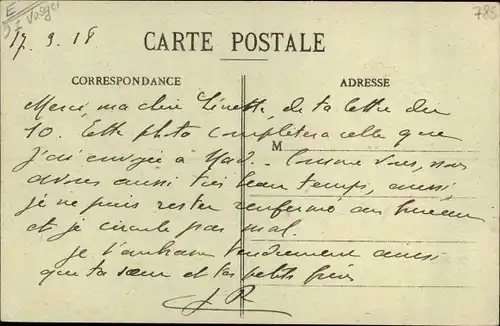 E
Vosges
785
17. 9. 18
CARTE POSTALE
CORRESPONDANCE
ADRESSE
M
Merci, ma chère Linette, de ta lettre du
10. Cette photo complètera celle que
j'ai envoyée à Mad. Comme vous, nous
avons aussi très beau temps, aussi
je ne puis rester renfermé au bureau
et je circule pas mal.
Je t'embrasse tendrement ainsi
que ta sœur et tes petits frères
JR